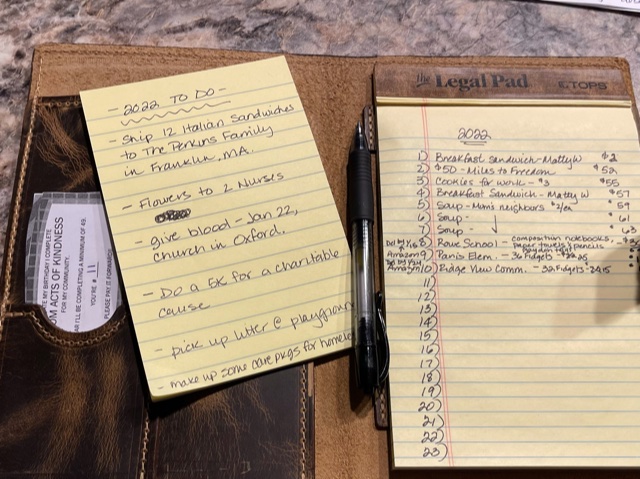 - 2022 TO DO -
- Ship 12 Italian Sandwiches
to The Perkins Family
in Franklin, MA.
- Flowers to 2 Nurses
- give blood - Jan 22,
church in Oxford.
- Do a 5K for a charitable
cause
- pick up litter @ playground
- make up some care pkgs for homeless
ATE MY BIRTHDAY I COMPLETE
OM ACTS OF KINDNESS
FOR MY COMMUNITY.
AR I'LL BE COMPLETING A MINIMUM OF 45.
YOU'RE # 11
PLEASE PAY IT FORWARD
the Legal Pad TOPS
2022
1) Breakfast Sandwich - Matty W $2
2) $50 - Miles to Freedom $52
3) Cookies for work - $3 $55
4) Breakfast Sandwich - Matty W $57
5) Soup - Mimi neighbors $2/ea 59
6) Soup $61
7) Soup $63
8) Rowe School - composition notebooks,
paper towels & pencils
Amazon 9) Panis Elem. - 36 Fidgets -
Amazon 10) Ridge View Comm. - 32 Fidgets -
11)
12)
13)
14)
15)
16)
17)
18)
19)
20)
21)
22)
23)